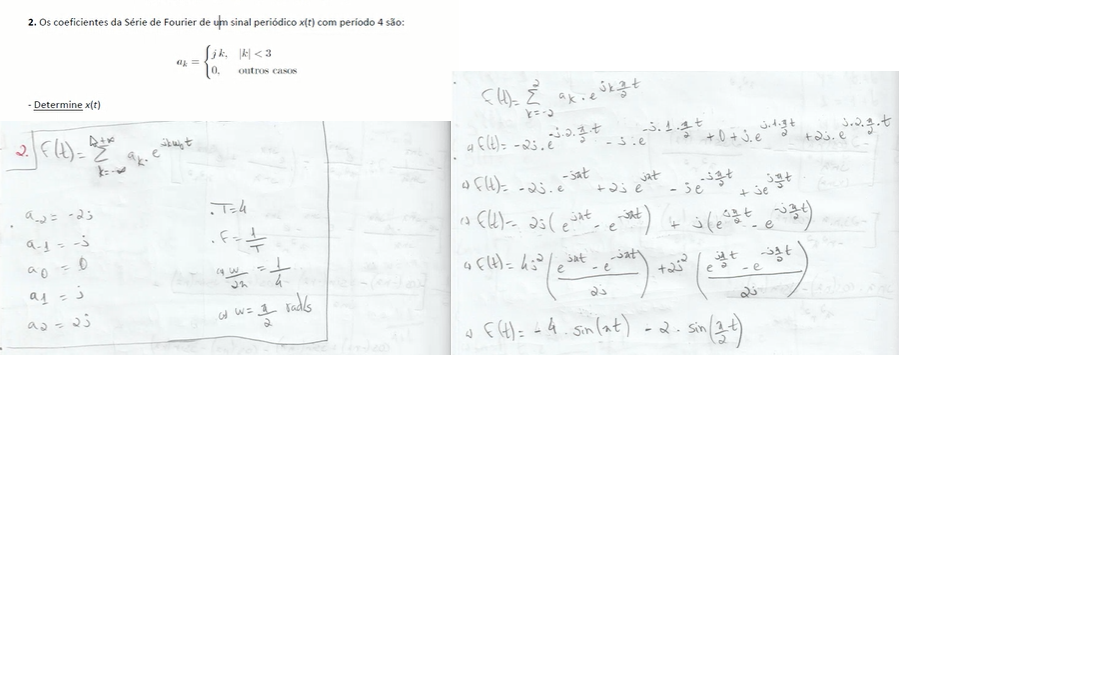 2. Os coeficientes da Série de Fourier de um sinal periódico x(t) com período 4 são:
a_k = { jk, |k| < 3
0, outros casos
- Determine x(t)
2. F(t) = Σ_{k=-∞}^{+∞} a_k . e^{jkω_0t}
a_{-2} = -2j
a_{-1} = -j
a_0 = 0
a_1 = j
a_2 = 2j
. T=4
. F = 1/T
w/2π = 1/4
w = π/2 rad/s
F(t) = Σ_{k=-2}^{2} a_k . e^{jkπ/2 t}
F(t) = -2j . e^{-j.2.π/2.t} - j . e^{-j.1.π/2 t} + 0 + j . e^{j.1.π/2 t} + 2j . e^{j.2.π/2.t}
F(t) = -2j . e^{-jπt} + 2j e^{jπt} - j e^{-jπ/2 t} + j e^{jπ/2 t}
F(t) = 2j ( e^{jπt} - e^{-jπt} ) + j ( e^{jπ/2 t} - e^{-jπ/2 t} )
F(t) = 4j² ( (e^{jπt} - e^{-jπt}) / 2j ) + 2j² ( (e^{jπ/2 t} - e^{-jπ/2 t}) / 2j )
F(t) = -4 . sin(πt) - 2 . sin(π/2 t)